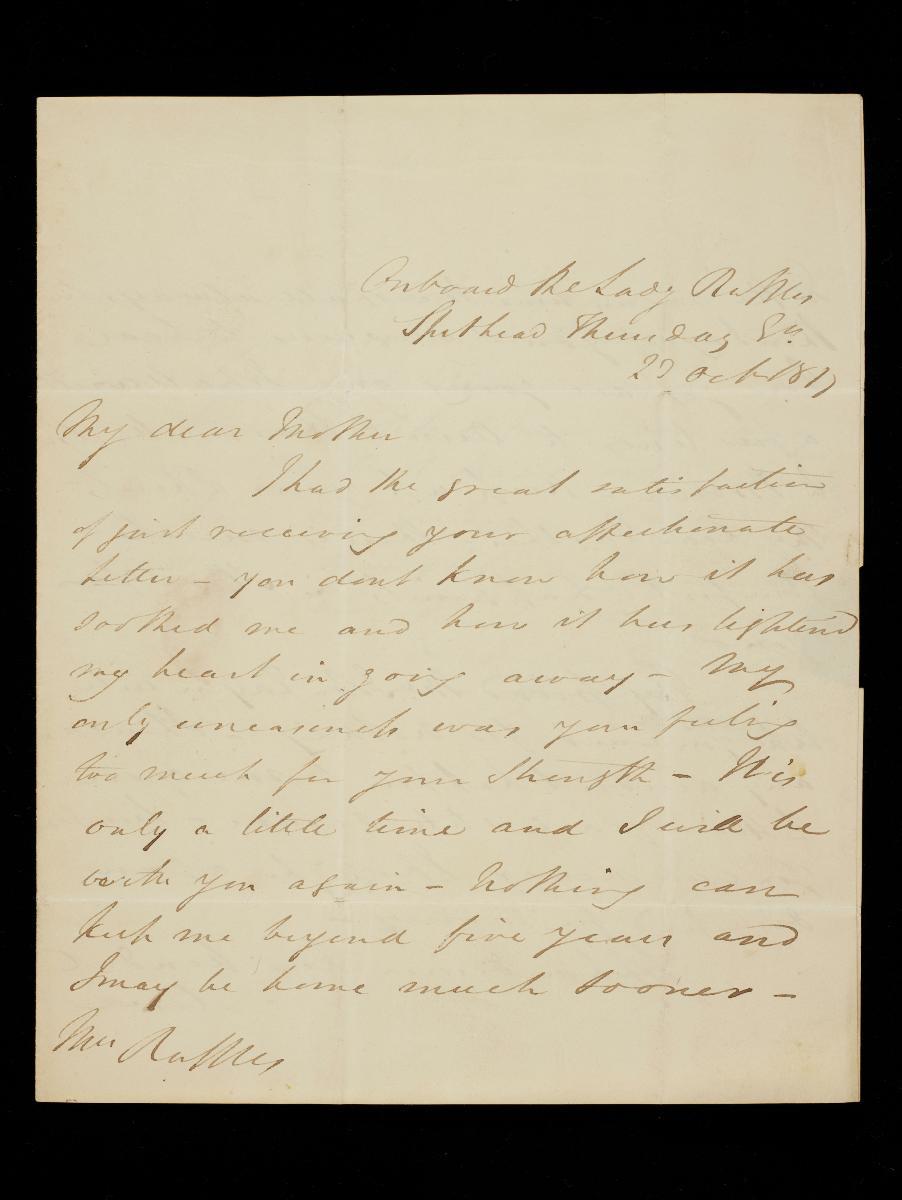 Onboard the Lady Raffles
Spithead Thursday Eg.
23 Octr 1817
My dear Mother
I had the great satisfaction
of just receiving your affectionate
letter - you dont know how it has
soothed me and how it has lightend
my heart in going away - My
only uneasiness was your feeling
too much for your strength - It is
only a little time and I will be
with you again - Nothing can
keep me beyond five years and
I may be home much sooner -
Mrs Raffles